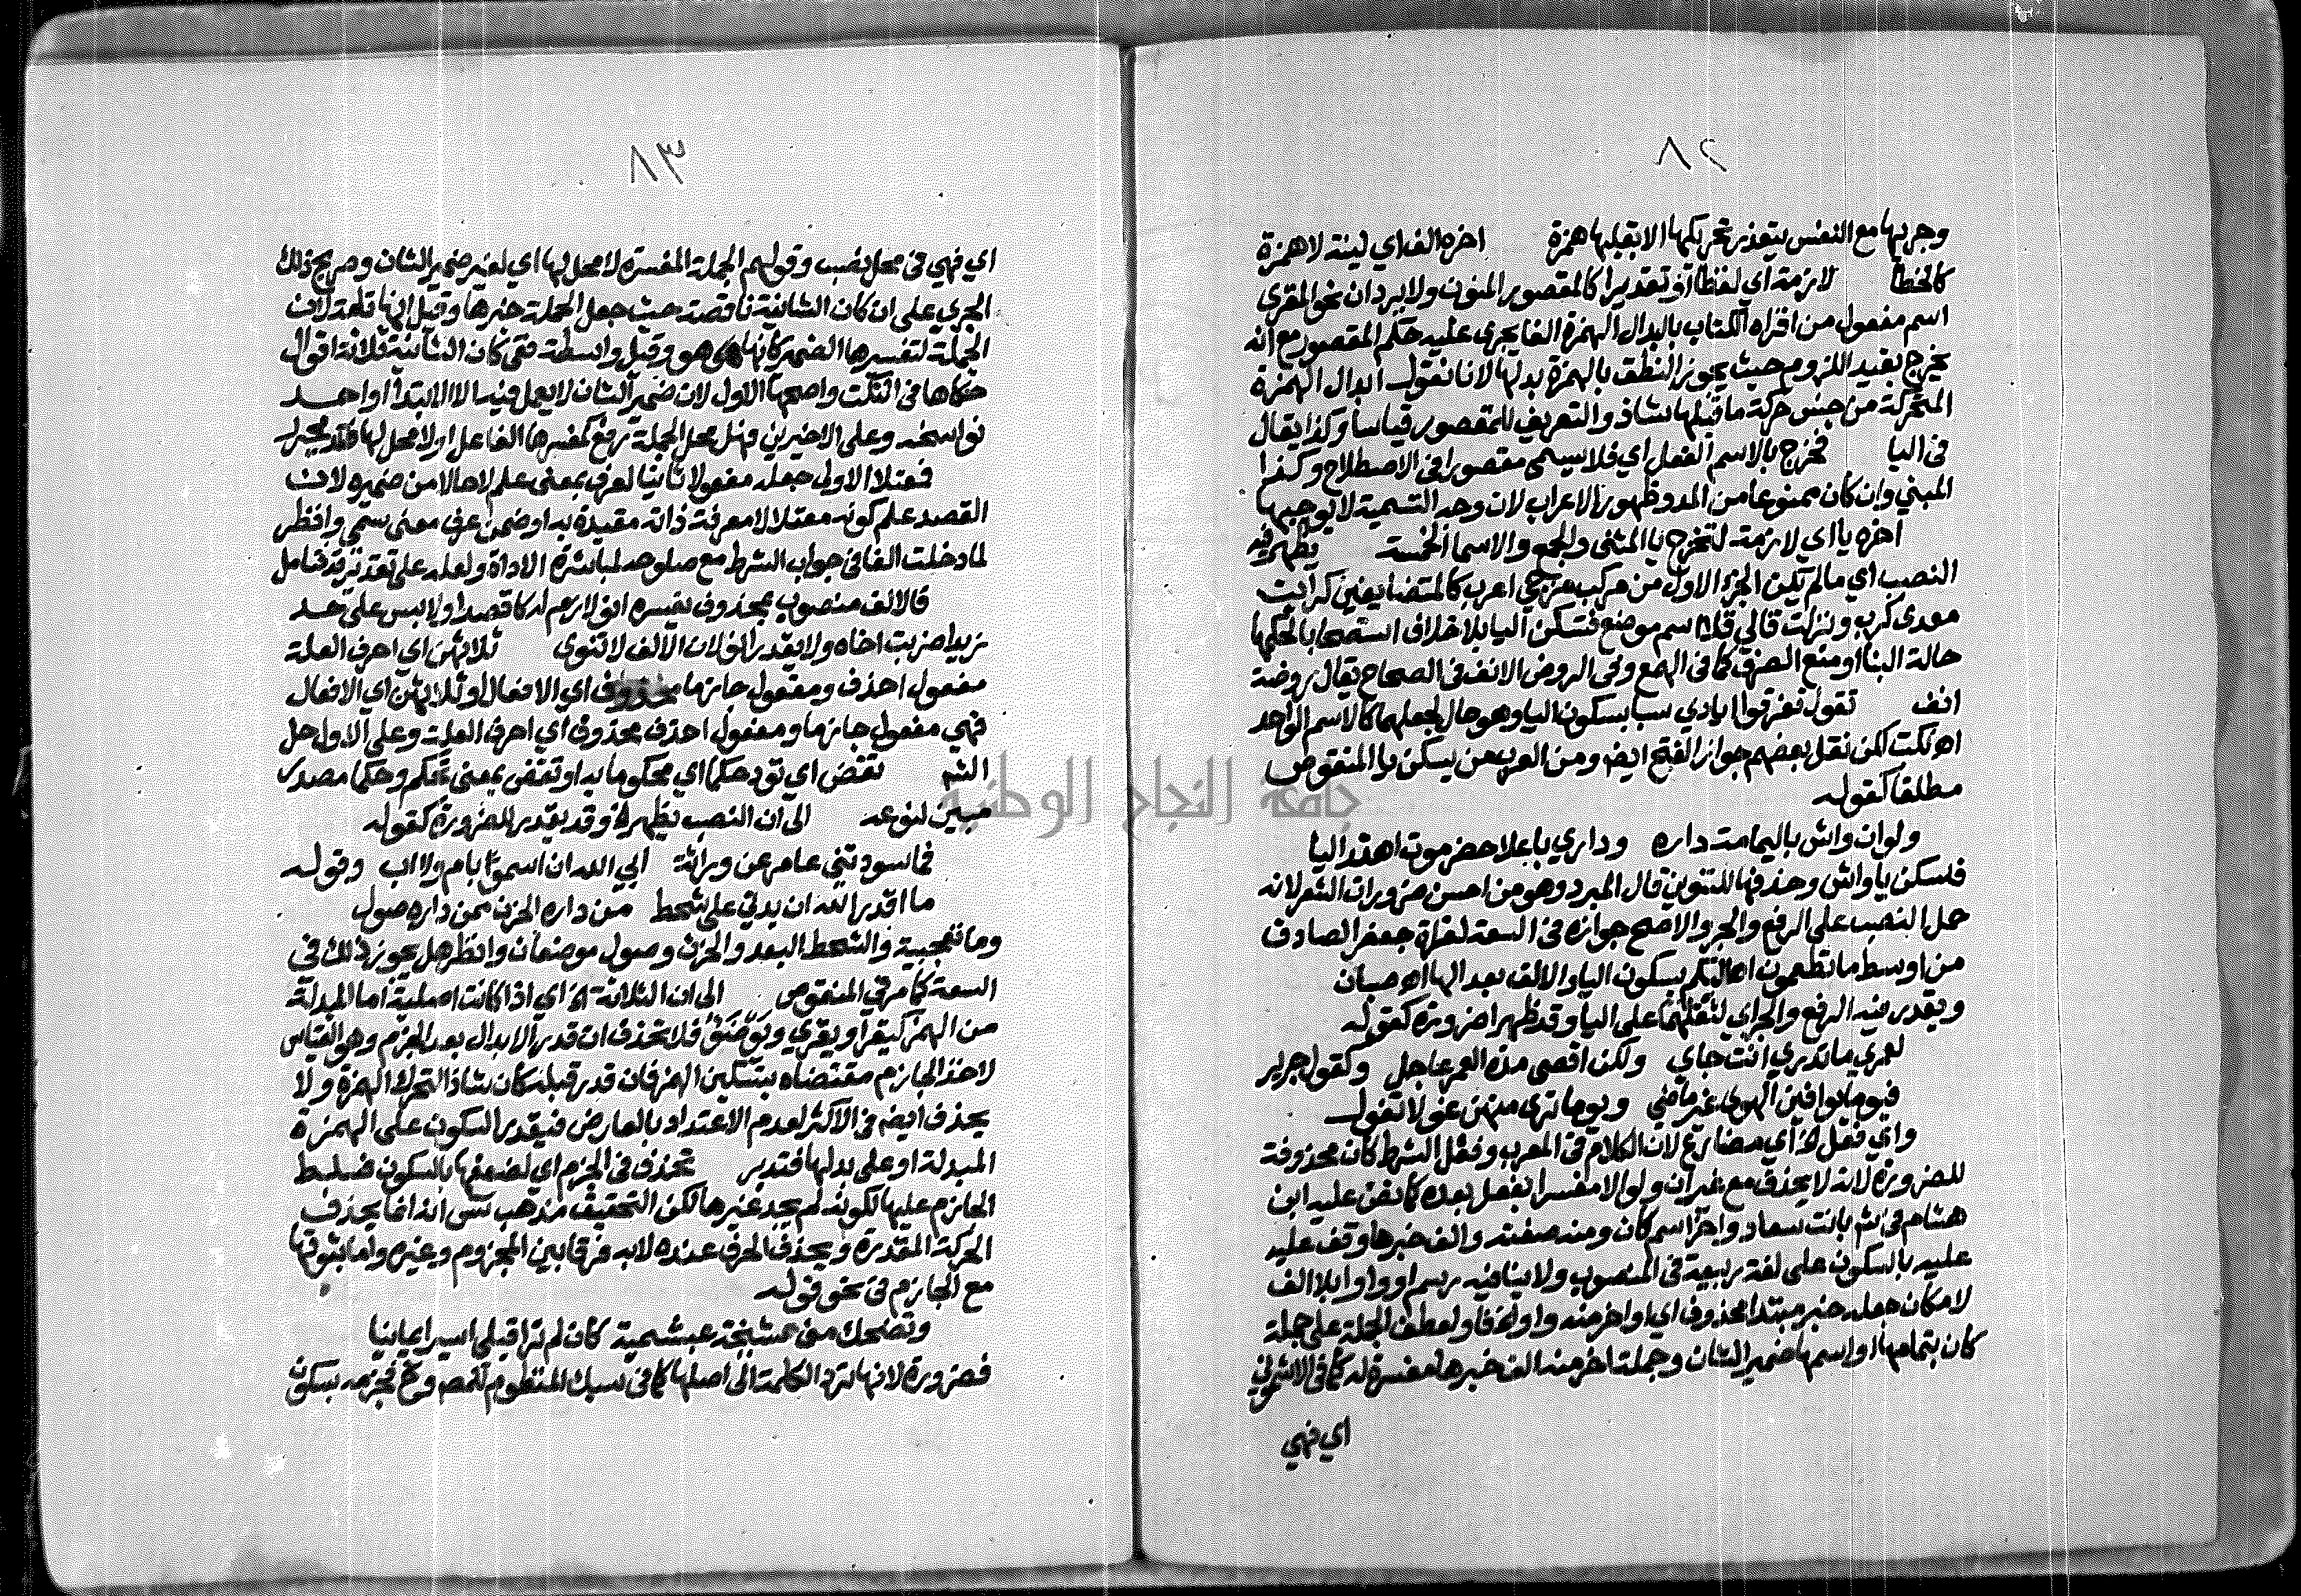 ٨٢
وجريها مع النفس يتعذر تحريكها الا بقلبها همزة اخره الف اي لينة لا همزة
كالخطأ لازمة اي لفظا او تقديرا كالمقصور المنون ولا يرد ان نحو المقرى
اسم مفعول من اقراه الكتاب بابدال الهمزة الفا يجرى عليه حكم المقصور مع انه
يخرج بقيد اللزوم حيث يجوز النطق بالهمزة بدلها لانا نقول ابدال الهمزة
المتحركة من جنس حركة ما قبلها شاذ والتعريف للمقصور قياسا وكذا يقال
فى اليا فخرج بالاسم الفعل اي فلا يسمى مقصورا فى الاصطلاح وكذا
المبني وان كان ممنوعا من المد وظهور الاعراب لان وجه التسمية لا يوجبها
اخره يا اي لازمة لتخرج يا المثنى والجمع والاسما الخمسة يظهر فيه
النصب اي ما لم يكن الجزء الاول من مركب مزجي اعرب كالمتضايفين كرايت
معدى كرب ونزلت قالي قلا اسم موضع فتسكن اليا بلا خلاف استصحابا لحكمها
حالة البنا او منع الصرف كما فى الهمع وفى الروض الانف فى الصحاح يقال روضة
انف تقول تفرقوا ايادي سبا بسكون اليا وهو حال لجعلهما كالاسم الواحد
اه نكت لكن نقل بعضهم جواز الفتح ايضا ومن العرب من يسكن يا المنقوص
مطلقا كقوله
ولو ان واش باليمامة داره وداري باعلا حضرموت اهتدا ليا
فسكن يا واش وحذفها للتنوين قال المبرد وهو من احسن ضرورات الشعر لانه
حمل النصب على الرفع والجر والاصح جوازه فى السعة لقراة جعفر الصادق
من اوسط ما تطعمون اهاليكم بسكون اليا والالف بعد الها اه صبان
ويقدر فيه الرفع والجر اي لثقلهما على اليا وقد ظهرا ضرورة كقوله
لعمري ما تدري انت جاي ولكن اقصى مدة العمر عاجل وكقول جرير
فيوما يوافين الهوى غير ماضي ويوما ترى منهن غولا تغول
واي فعل الخ اي مضارع لان الكلام فى المعرب وفعل الشرط كان محذوفة
للضرورة لانه لا يحذف مع غير ان ولو الا مفسرا بفعل بعده كما نص عليه ابن
هشام فى ش بانت سعاد واخر اسم كان ومنه صفته والف خبرها وقف عليه
عليه بالسكون على لغة ربيعة فى المنصوب ولا ينافيه رسم او واو ابلا الف
لامكان جعله خبر مبتدا محذوف اي او اخر منه واو الخ فاو لعطف الجملة على جملة
كان بتمامها او اسمها ضمير الشان وجملة اخر منه الف خبرها مفسرة له كما فى الاشموني
اي فهي
٨٣
اي فهي فى محل نصب وقولهم الجملة المفسرة لا محل لها اي لغير ضمير الشان وصريح ذلك
الجري على ان كان الشانية ناقصة حيث جعل الجملة خبرها وقيل انها تامة لان
الجملة لتفسيرها الضمير كانها هي هو وقيل واسطة ففى كان الشانية ثلاثة اقوال
حكاها فى النكت واصحها الاول لان ضمير الشان لا يعمل فيه الا الابتدا او احد
نواسخه وعلى الاخيرين فهل محل الجملة رفع كمفسرها الفاعل او لا محل لها
فمعتلا الاولى جعله مفعولا ثانيا لعرف بمعنى علم لا حالا من ضميره لان
القصد علم كونه معتلا لا معرفة ذاته مقيدة به او ضمن عرف معنى سمى وانظر
لما دخلت الفا فى جواب الشرط مع صلوحه لمباشرة الاداة ولعله على تقدير قد فتامل
فالالف منصوب بمحذوف يفسره انو لازم له كاقصد او لابس على حد
زيدا ضربت اخاه ولا يقدر انو لان الالف لا تنوى ثلاثهن اي احرف العلة
مفعول احذف ومفعول جازما محذوف اي الافعال او ثلاثهن اي الافعال
فهي مفعول جازما ومفعول احذف محذوف اي احرف العلة وعلى الاول حل
الشم تقض اي تود حكما اي محكوما به او تقض بمعنى تحكم وحكما مصدر
مبين لنوعه الى ان النصب يظهر الخ وقد يقدر للضرورة كقوله
فما سودتني عامر عن وراثة ابى الله ان اسمو بام ولا اب وقوله
ما اقدر الله ان يدني على شحط من داره الحزن ممن داره صول
وما تعجبية والشحط البعد والحزن وصول موضعان وانظر هل يجوز ذلك فى
السعة كما مر فى المنقوص الى ان الثلاثة الخ اي اذا كانت اصلية اما المبدلة
من الهمز كيقرا ويقري ويوضو فلا تحذف ان قدر الابدال بعد الجزم وهو القياس
لاخذ الجازم مقتضاه بتسكين الهمز فان قدر قبله كان شاذا لتحرك الهمزة ولا
يحذف ايضا فى الاكثر لعدم الاعتداد بالعارض فيقدر السكون على الهمزة
المبدلة او على بدلها فتدبر تحذف فى الجزم اي لضعفها بالسكون فسلط
الجازم عليها لكونه لم يجد غيرها لكن التحقيق مذهب س انه انما يحذف
الحركة المقدرة ويحذف الحرف عنده لا به فرقا بين المجزوم وغيره واما ثبوتها
مع الجازم فى نحو قوله
وتضحك مني شيخة عبشمية كان لم ترا قبلي اسيرا يمانيا
فضرورة لانها ترد الكلمة الى اصلها كما فى سبك المنظوم للمص وح فجزمه بسكون
جامعة النجاح الوطنية